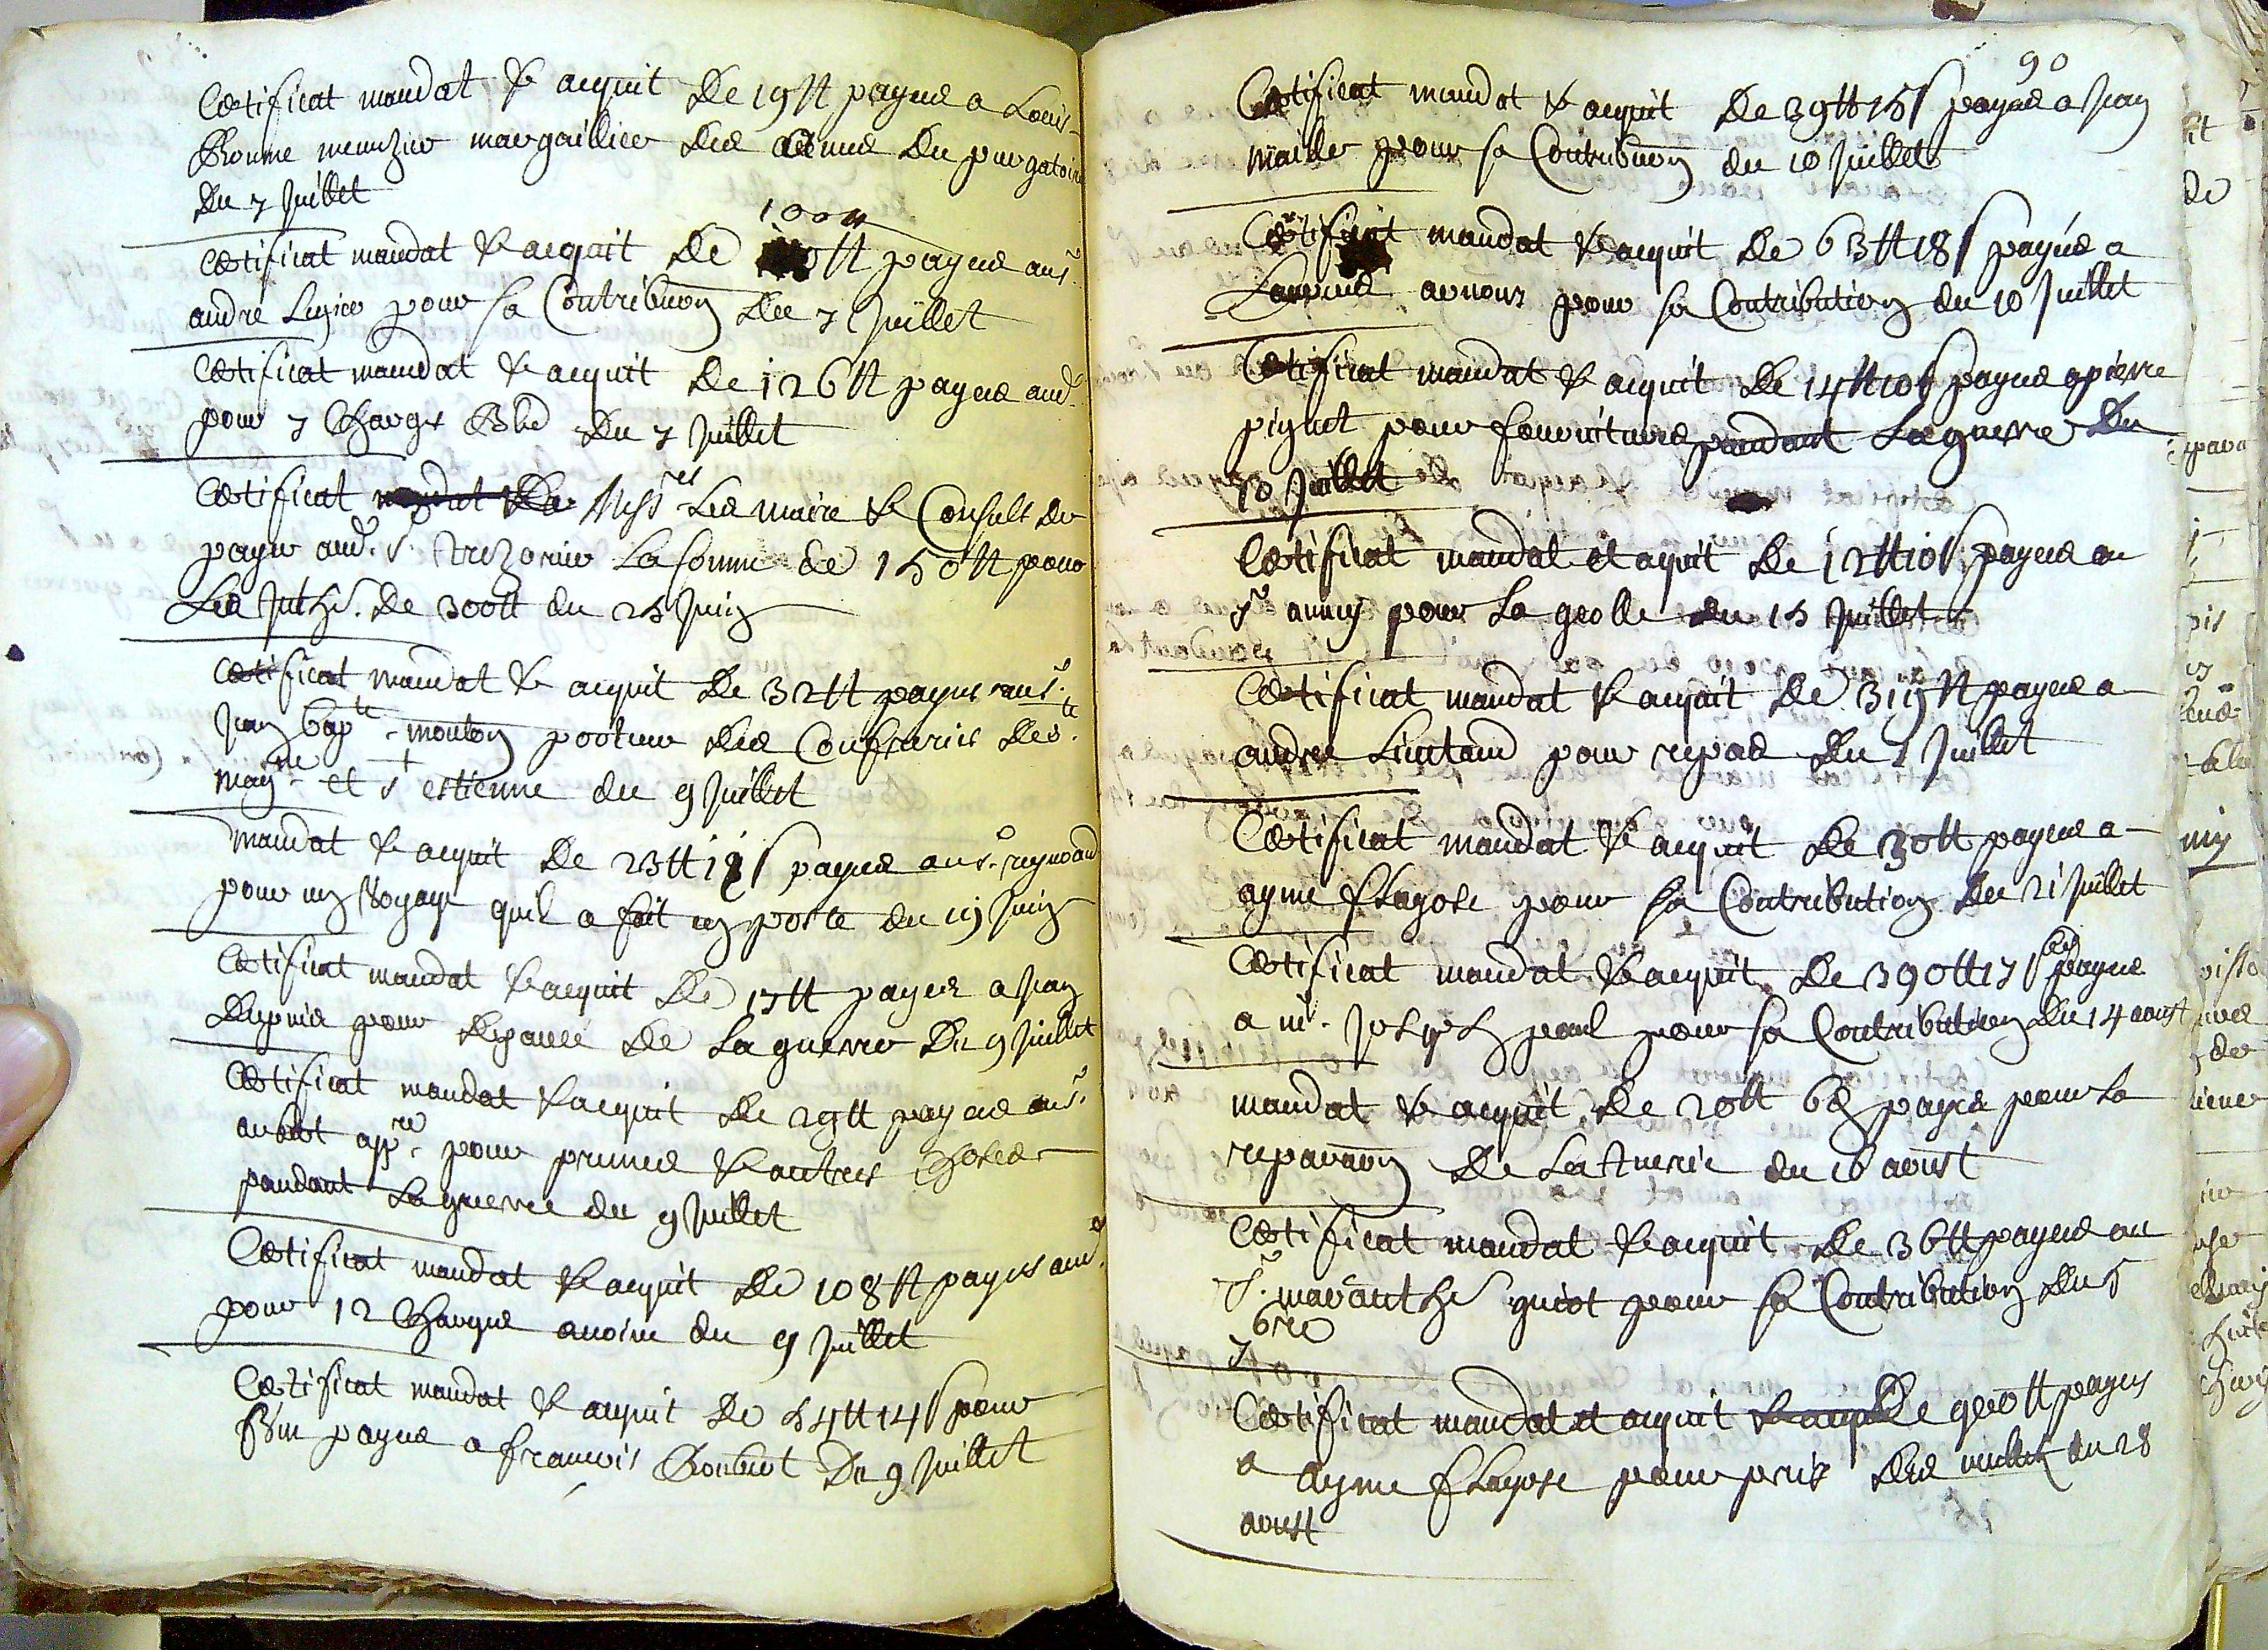 Certificat mandat & acquit De 19 tt payes a Louis
Bonne menuzier margaillier des ames du purgatoire
Du 7 Juillet
100 tt
Certificat mandat & acquit De payes au sr
andré Legier pour sa Contribuon Du 7 Juillet
Certificat mandat & acquit De 126 tt payes aud.
pour 7 Charges Bled Du 7 Juillet
Certificat mandat De Messrs Les maire & Consuls de
payer aud. sr trezorier La somme de 150 tt pour
Les De 300 tt du 25 Juin
Certificat mandat & acquit De 32 tt payes au sr
Jean Bapte mouton recteur des Confreries De ste
magne et st estienne du 9 Juillet
mandat & acquit De 23 tt payes au sr reynaud
pour un Voyage quil a fait en poste du 19 Juin
Certificat mandat & acquit De 17 tt payes a Jean
pour depance De La guerre Du 9 Juillet
Certificat mandat & acquit De 29 tt payes au sr
audibert appre pour prunes & autres Choses
pandant La guerre du 9 Juillet
Certificat mandat & acquit De 108 tt payes aud.
pour 12 Charges avoine du 9 Juillet
Certificat mandat & acquit De 54 tt 14 s pour
payes a francois Boubert Du 9 Juillet
90
Certificat mandat & acquit De 39 tt 15 s payes a Jean
maille pour sa Contribuon du 10 Juillet
Certificat mandat & acquit De 63 tt 18 s payés a
Laurens arnoux pour sa Contribution du 10 Juillet
Certificat mandat & acquit De 14 tt 10 s payes a pierre
pignet pour fournitures pandant La guerre Du
10 Juillet
Certificat mandat et aquit De 12 tt 10 s payes au
sr pour La geolle du 15 Juillet
Certificat mandat & acquit De 319 tt payes a
andre Lieutaud pour repas Du 1 Juillet
Certificat mandat & acquit De 30 tt payes a
ayme flayose pour sa Contribution Du 21 Juillet
Certificat mandat & acquit De 390 tt 17 s 6 d payes
a mr Joseph paul pour sa Contribution Du 14 aoust
mandat & acquit De 20 tt 6 d payes pour La
reparaon De La tuerie du 16 aoust
Certificat mandat & acquit De 36 tt payes au
sr guiot pour sa Contribution Du 5
7bre
Certificat mandat et acquit & acquit De payes
a ayme flayose pour prix Des du 28
aoust